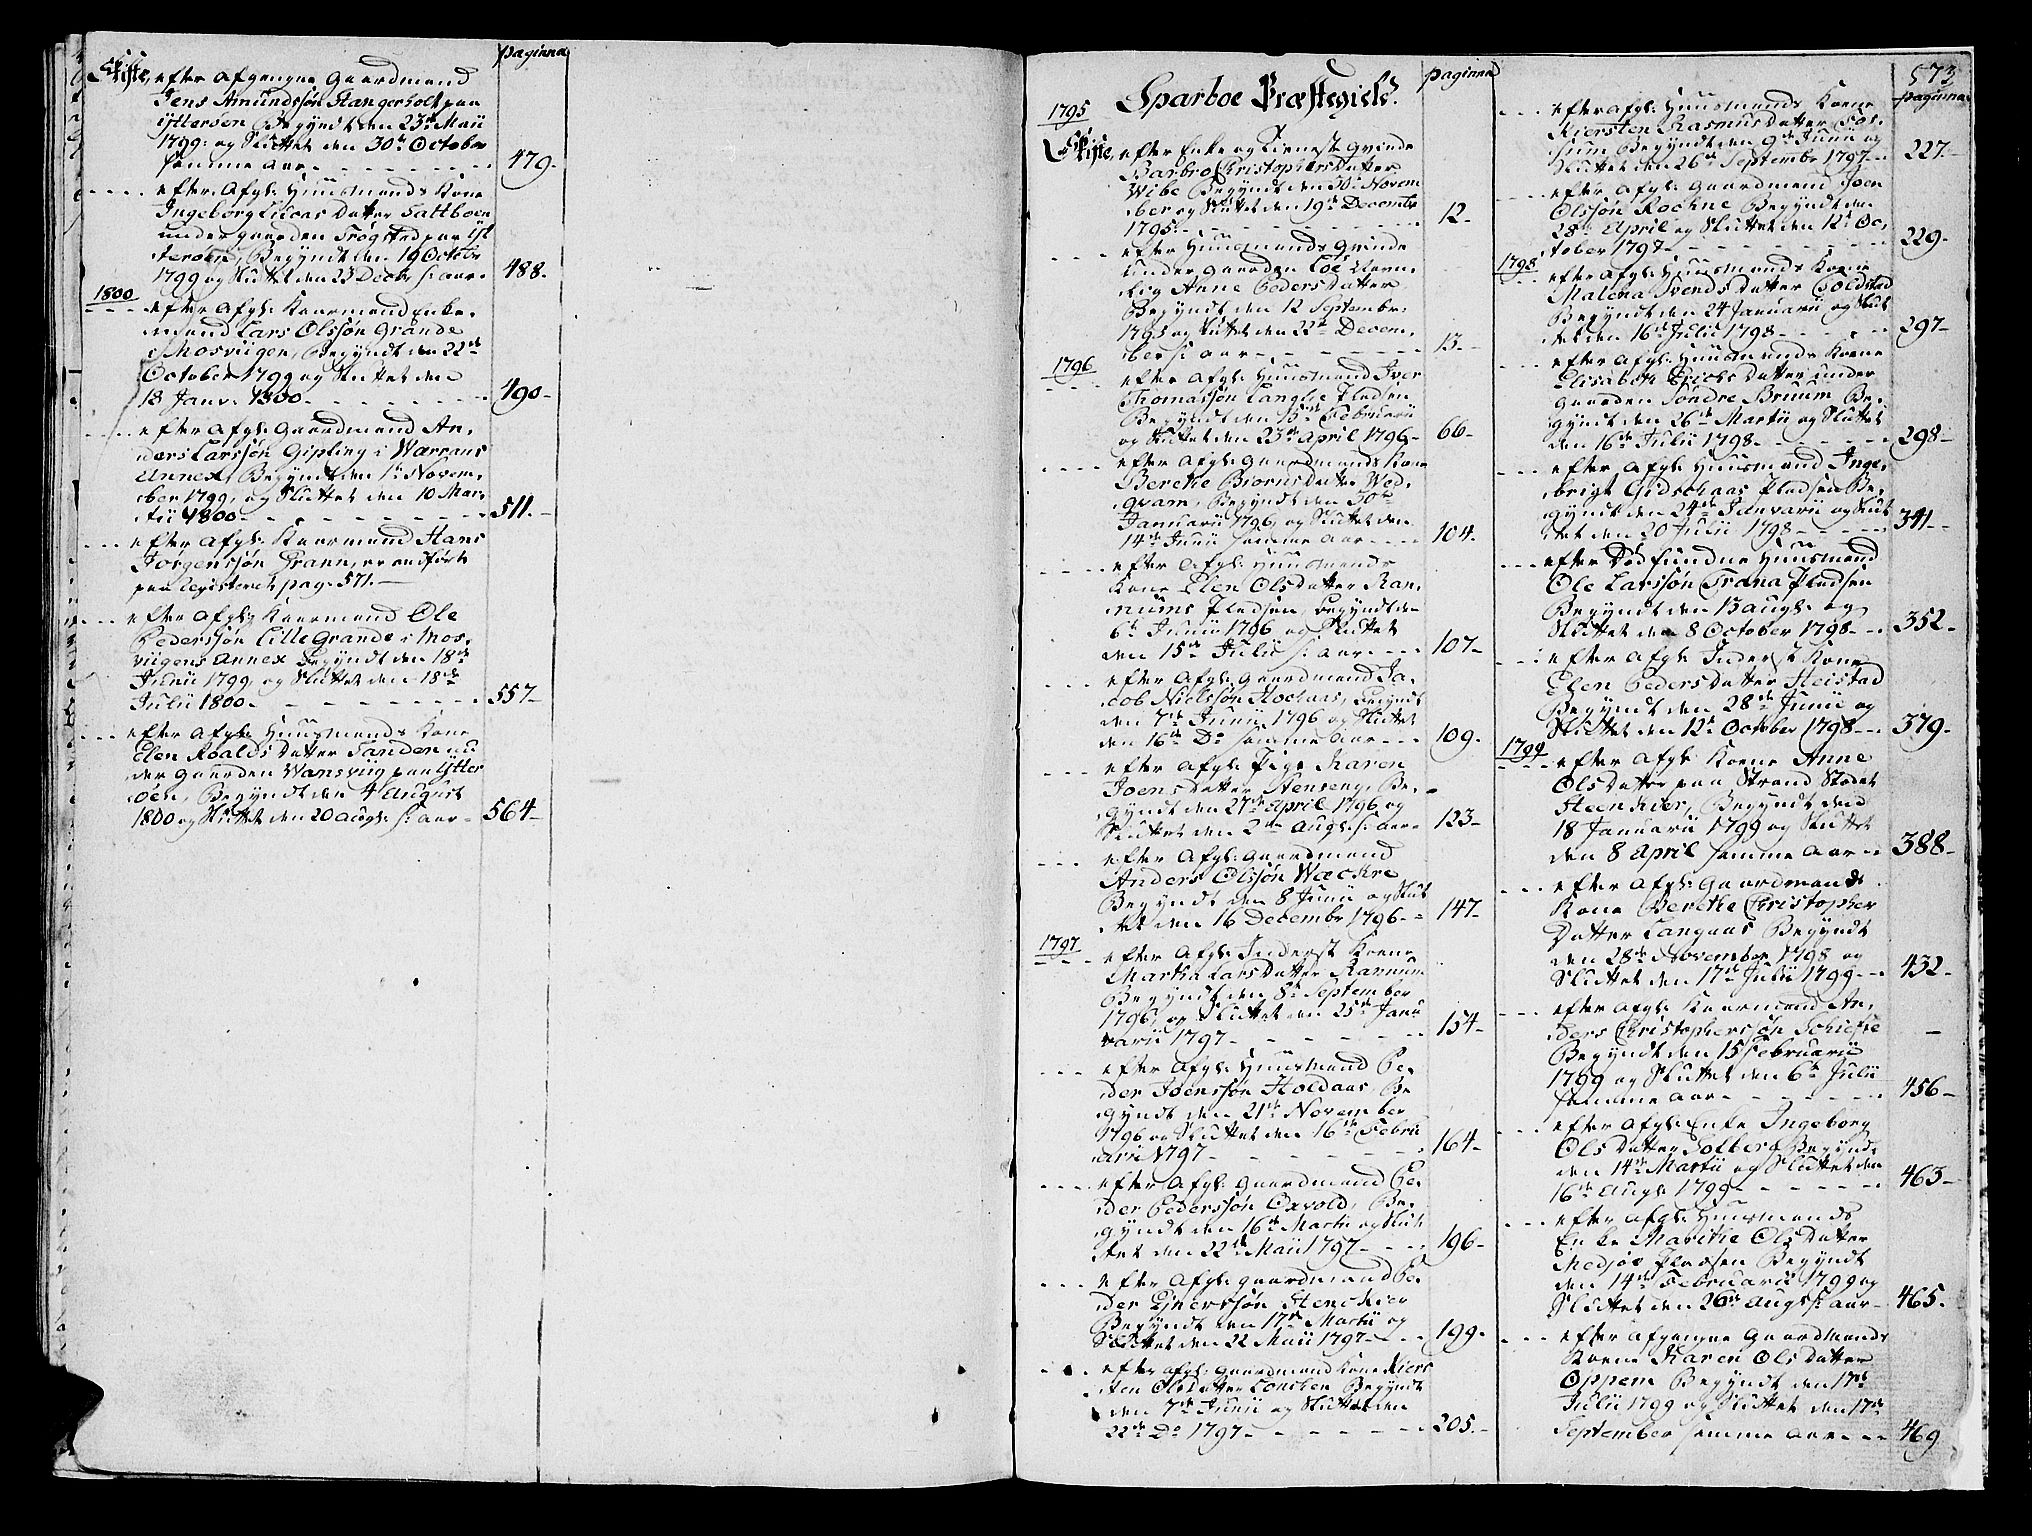 paginna
Skifte, efter Afgangne Gaardmand
Jens Amundssøn Stangerholt paa
ytterøen Begyndt den 23de Maii
1799. og Sluttet den 30te October
samme Aar - 479.
efter Afgl: Huusmands Kone
Ingeborg Lucas Datter Sattboen
under gaarden Trøgstad paa yt
terøen, Begyndt den 19 Octobr
1799 og Sluttet den 23 Decbr s: Aar. 488.
1800
efter Afgl: Kaarmand Enke
mand Lars Olssøn Grande
i Mosviigen, Begyndt den 22de
October 1799 og Sluttet den
18 Janv. 1800. 490.
efter Afgl: Gaardmand An
ders Larssøn Gipling i Wærrans
Annex, Begyndt den 1te Novem
ber 1799, og Sluttet den 10 Mar
tii 1800. 511.
efter Afgl: Kaarmand Hans
Jørgenssøn Grann, er anført
paa Registeret pag. 571.
efter Afgl: Kaarmand Ole
Pederssøn Lille Grande i Mos
viigens Annex Begyndt den 18de
Junii 1799, og Sluttet den 18de
Julii 1800. 557
efter Afgl: Huusmands Kone
Elen Roalds Datter Sanden un
der Gaarden Wansviig paa ytter
øen, Begyndt den 4 August
1800 og Sluttet den 20 Augl: s: Aar 564
Sparboe Præstegield.
paginna
1795
Skifte, efter Enke og Tieneste Qvinde
Barbro Christophers Datter
Wibe Begyndt den 30te Novem
ber og Sluttet den 19de Decembr
1795. 12
efter Huusmands Qvinde
under gaarden Løe Navn
lig Anne Peders Datter,
Begyndt den 12 Septembr.
1795 og Sluttet den 22de Decem
ber s: Aar 13.
1796
efter Afgl: Huusmand Iver
Thomassøn Langlie Pladsen
Begyndt den 15de Februarii
og Sluttet den 23de April 1796 66
efter Afgl: Gaardmands Kone
Berethe Biørns Datter Wed
qvam, Begyndt den 30te
Januarii 1796, og Sluttet den
14de Junii samme Aar 104.
efter Afgl: Huusmands
Kone Elen Ols Datter Ran
nums Pladsen, Begyndt den
6te Junii 1796 og Sluttet
den 15de Julii s: Aar 107
efter Afgl: Gaardmand Ja
cob Nielssøn Hochaas, Begyndt
den 7de Junii 1796 og Sluttet
den 16de Do samme Aar 109.
efter Afgl: Pige Karen
Joens Datter Stenseng, Be
gyndt den 27de April 1796 og
Sluttet den 2den Augl: s: Aar 123
efter Afgl: Gaardmand
Anders Olssøn Wæckre
Begyndt den 8 Junii og Slut
tet den 16 Decembr 1796 147
1797
efter Afgl: Inderst Kone
Martha Lars Datter Rannum
Begyndt den 8de September
1796, og Sluttet den 25de Janu
varii 1797 154
efter Afgl: Huusmand Pe
der Joenssøn Holdaas, Be
gyndt den 21de November
1796 og Sluttet den 16de Febru
arii 1797 164
efter Afgl: Gaardmand Pe
der Pederssøn Oxvold, Be
gyndt den 16de Martii og Slut
tet den 22de Maii 1797 196
efter Afgl: gaardmand Pe
der Ejnerssøn Stenckier
Begyndt den 17de Martii og
Sluttet den 22 Maii 1797 199.
efter Afgl: Gaardmand Kone Kiers
ten Ols Datter Lorchen Begyndt
den 7de Junii og Sluttet den
22de Do 1797 205.
573
paginna
efter Afgl: Huusmands Kone
Kiersten Rasmus Datter Fos
sum Begyndt den 9de Junii og
Sluttet den 26de Septembr 1797 227.
efter Afgl: Gaardmand Joen
Olssøn Rochne Begyndt den
28de April og Sluttet den 12te Oc
tober 1797 229.
1798
efter Afgl: Huusmands Kone
Malena Svends Datter Voldstad
Begyndt den 24 Januarii og Slut
tet den 16de Julii 1798 297
efter Afgl: Huusmands Kone
Elisabeth Erichs Datter under
gaarden Søndre Bruum Be
gyndt den 26de Martii og Sluttet
den 16de Julii 1798 298
efter Afgl: Huusmand Inge
brigt Gidschaas Pladsen Be
gyndt den 24de Januarii og Slut
tet den 20 Julii 1798 341
efter Dødfundne Huusmand
Ole Larssøn Trana Pladsen
Begyndt den 13 Augl: og
Sluttet den 8 October 1798 352
efter Afgl: Inderst Kone
Elen Peders Datter Heistad
Begyndt den 28de Junii og
Sluttet den 12te October 1798 379
1799
efter Afgl: Kone Anne
Ols Datter paa Strand Stædet
Steenkier, Begyndt den
18 Januarii 1799 og Sluttet
den 8 April samme Aar 388
efter Afgl: Gaardmands
Kone Berethe Christopher
Datter Langaas Begyndt
den 28de November 1798 og
Sluttet den 17de Julii 1799 432
efter Afgl: Kaarmand An
ders Christopherssøn Schiefte
Begyndt den 15 Februarii
1799 og Sluttet den 6te Julii
samme Aar 456
efter Afgl: Enke Ingeborg
Ols Datter Solberg Begyndt
den 14de Martii og Sluttet den
16de Augl: 1799 463
efter Afgl: Huusmands
Enke Marithe Ols Datter
Medjøe Pladsen Begyndt
den 14de Februarii 1799 og
Sluttet den 26de Augl: s: Aar 465.
efter Afgangne Gaardmands
Kone Karen Ols Datter
Oppem Begyndt den 17de
Julii 1799 og Sluttet den 17de
September samme Aar 469